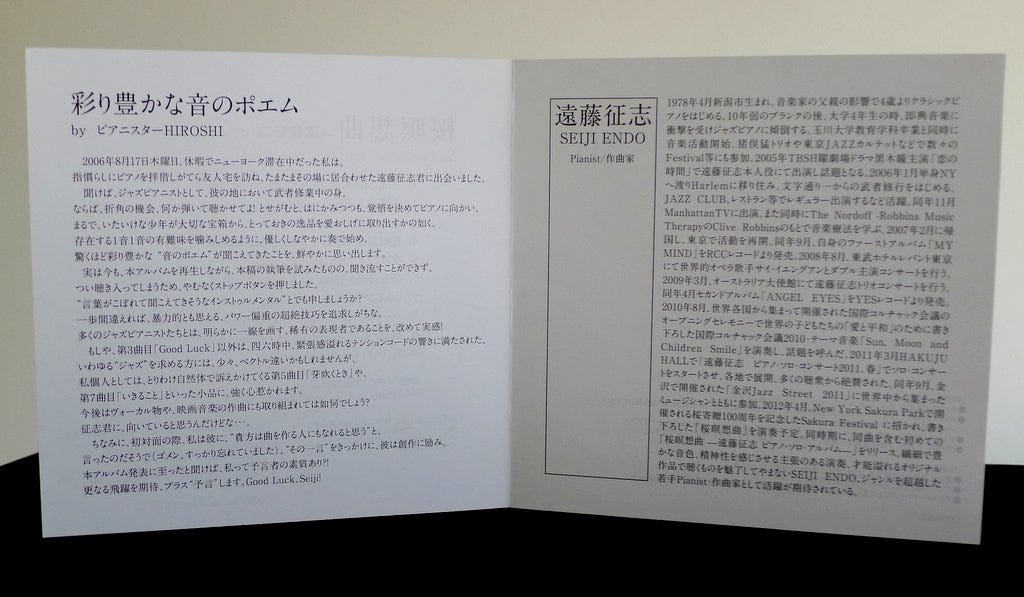 彩り豊かな音のポエム
by ピアニスターHIROSHI
2006年8月17日木曜日、休暇でニューヨーク滞在中だった私は、
指慣らしにピアノを拝借しがてら友人宅を訪ね、たまたまその場に居合わせた遠藤征志君に出会いました。
聞けば、ジャズピアニストとして、彼の地において武者修業中の身。
ならば、折角の機会、何か弾いて聴かせてよ!とせがむと、はにかみつつも、覚悟を決めてピアノに向かい、
まるで、いたいけな少年が大切な宝箱から、とっておきの逸品を愛おしげに取り出すかの如く、
存在する1音1音の有難味を噛みしめるように、優しくしなやかに奏で始め、
驚くほど彩り豊かな “音のポエム”が聞こえてきたことを、鮮やかに思い出します。
実は今も、本アルバムを再生しながら、本稿の執筆を試みたものの、聞き流すことができず、
つい聴き入ってしまうため、やむなくストップボタンを押しました。
“言葉がこぼれて聞こえてきそうなインストゥルメンタル”とでも申しましょうか?
一歩間違えれば、暴力的とも思える、パワー偏重の超絶技巧を追求しがちな、
多くのジャズピアニストたちとは、明らかに一線を画す、稀有の表現者であることを、改めて実感!
もしや、第3曲目「Good Luck」以外は、四六時中、緊張感溢れるテンションコードの響きに満たされた、
いわゆる“ジャズ”を求める方には、少々、ベクトル違いかもしれませんが、
私個人としては、とりわけ自然体で訴えかけてくる第5曲目「芽吹くとき」や、
第7曲目「いきること」といった小品に、強く心惹かれます。
今後はヴォーカル物や、映画音楽の作曲にも取り組まれては如何でしょう?
征志君に、向いていると思うんだけどな…。
ちなみに、初対面の際、私は彼に、“貴方は曲を作る人にもなれると思う”と、
言ったのだそうで(ゴメン、すっかり忘れていました)、“その一言”をきっかけに、彼は創作に励み、
本アルバム発表に至ったと聞けば、私って予言者の素質あり?!
更なる飛躍を期待、プラス“予言”します。Good Luck、Seiji!
遠藤征志
SEIJI ENDO
Pianist/作曲家
1978年4月新潟市生まれ。音楽家の父親の影響で4歳よりクラシックピ
アノをはじめる。10年弱のブランクの後、大学4年生の時、即興音楽に
衝撃を受けジャズピアノに傾倒する。玉川大学教育学科卒業と同時に
音楽活動開始。猪俣猛トリオや東京JAZZカルテットなどで数々の
Festival等にも参加。2005年TBS日曜劇場ドラマ黒木瞳主演「恋の
時間」で遠藤征志本人役にて出演し話題となる。2006年1月単身NY
へ渡りHarlemに移り住み、文字通り一からの武者修行をはじめる。
JAZZ CLUB、レストラン等でレギュラー出演するなど活躍。同年11月
ManhattanTVに出演。また同時にThe Nordoff -Robbins Music
TherapyのClive Robbinsのもとで音楽療法を学ぶ。2007年2月に帰
国し、東京で活動を再開。同年9月、自身のファーストアルバム「MY
MIND」をRCCレコードより発売。2008年8月、東武ホテルレバント東京
にて世界的オペラ歌手サイ・イエングアンとダブル主演コンサートを行う。
2009年3月、オーストラリア大使館にて遠藤征志トリオコンサートを行う。
同年4月セカンドアルバム「ANGEL EYES」をYESレコードより発売。
2010年8月、世界各国から集まって開催された国際コルチャック会議の
オープニングセレモニーで世界の子どもたちの「愛と平和」のために書き
下ろした国際コルチャック会議2010・テーマ音楽「Sun, Moon and
Children Smile」を演奏し、話題を呼んだ。2011年3月HAKUJU
HALLで「遠藤征志 ピアノ・ソロ・コンサート2011、春」でソロ・コンサー
トをスタートさせ、各地で展開、多くの聴衆から絶賛された。同年9月、金
沢で開催された「金沢Jazz Street 2011」に世界中から集まった
ミュージシャンとともに参加。2012年4月、New York Sakura Parkで開
催される桜寄贈100周年を記念したSakura Festival に招かれ、書き
下ろした「桜瞑想曲」を演奏予定。同時期に、同曲を含む初めての
「桜瞑想曲 ―遠藤征志 ピアノ・ソロ・アルバム―」をリリース。繊細で豊
かな音色、精神性を感じさせる主張のある演奏、才能溢れるオリジナル
作品で聴くものを魅了してやまないSEIJI ENDO。ジャンルを超越した
若手Pianist・作曲家として活躍が期待されている。